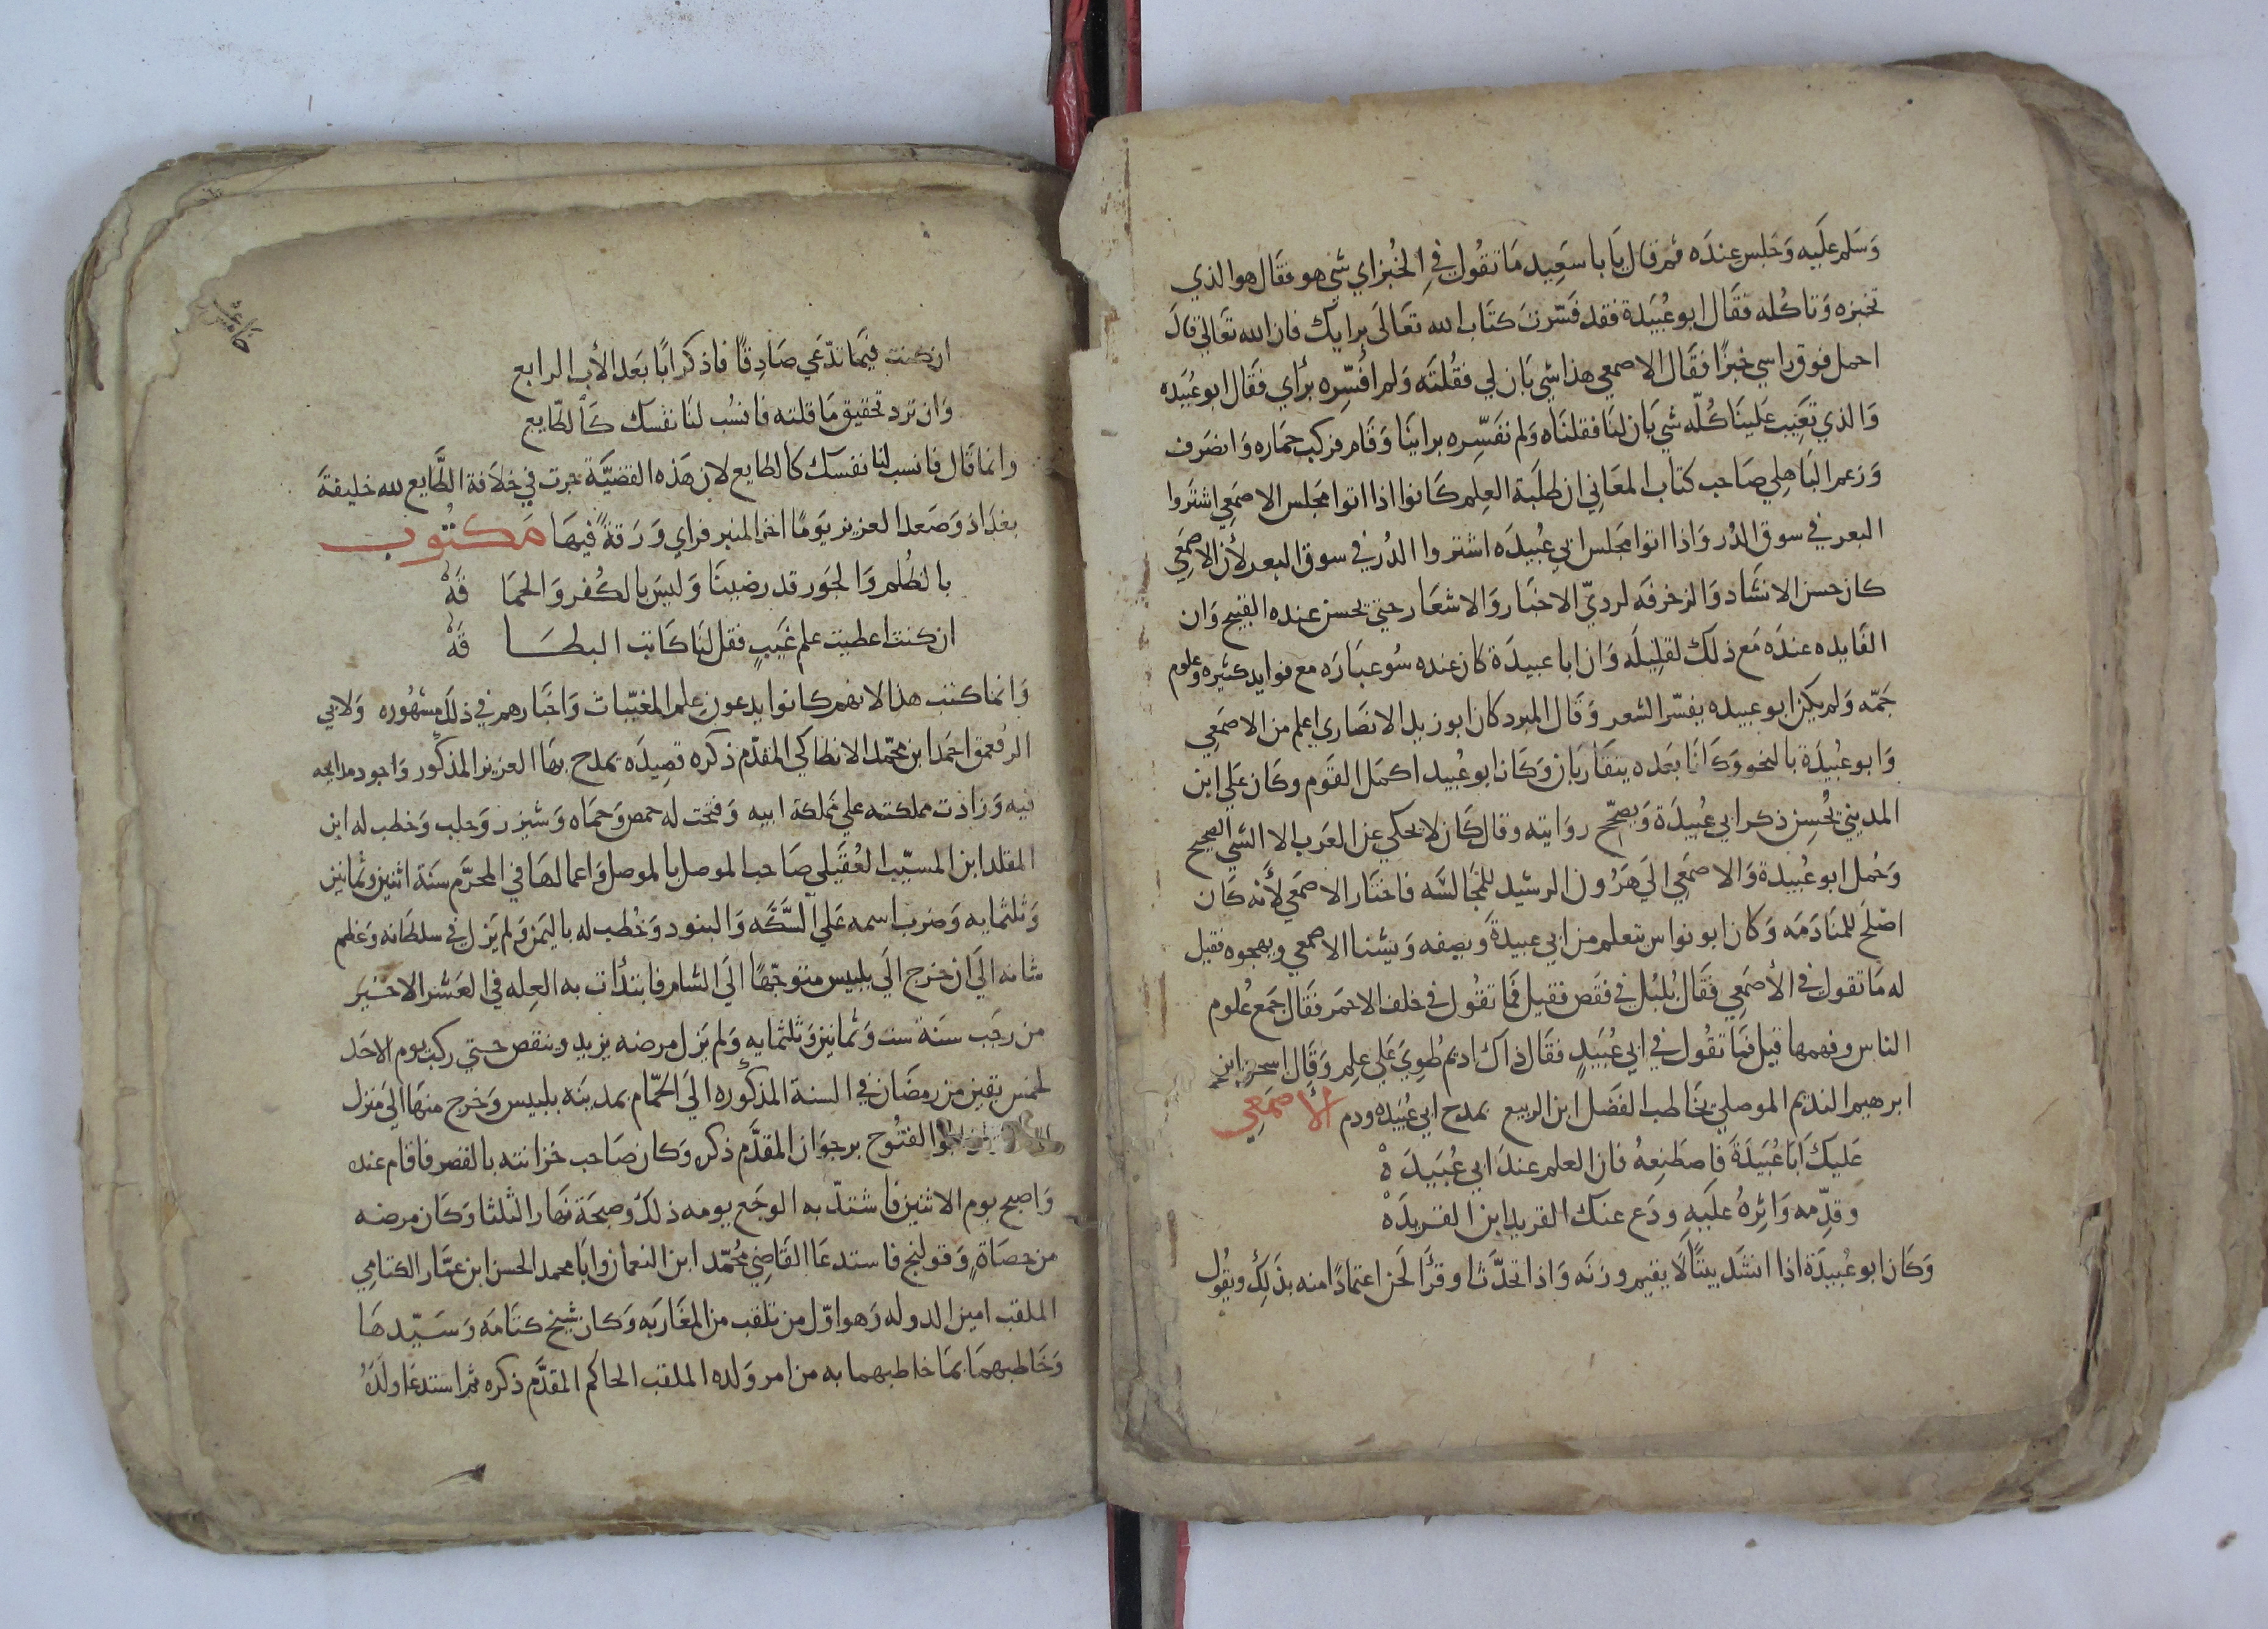 وَسَلم علَيه وَجَلس عِندَه ثم قال يَابا سعَيِيد مَا تقُول في الخُبز اي شي هو فقَال هوا لذي
تخبزه وَتاكُله فقَال ابو عُبَيدَة فقد فَسّرتَ كتَاب الله تعَالَى برايك فان الله تعَالي قالَ
احمل فوق راسي خبزًا فقَال الاصمعي هذا شي بَان لي فقُلتَه وَلم أُفسِّره برأي فقَال ابو عبُيَده
وَالذي تعَيِب عَلينَا كُلّه شي بَان لنَا فقلنَاه وَلم نفَسِّره براينَا وَقَام فركب حمَاره وَانصَرف
وَزعم البَاهِلي صَاحب كتَاب المعَاني ان طلَبة العِلم كَانوا اذا اتوا مجَلس الاصمَعي اشتَروا
البعر في سوق الدُر وَاذا اتوا مجَلس ابي عُبيدَه اشتروا الدُر في سوق البعر لأن الاصمَعِي
كان حسن الانشَاد وَالزخرفَه لرديّ الاخبَار وَالاشعَار حتي يحسن عنده القبيح وَان
الفَايده عندَه مَع ذلك لقلِيلَه وَان ابا عبيدَة كان عنده سُو عبَارَه مع فوايد كثيره وعلوم
جَمّه وَلم يكن ابو عبيده يفسّر الشعر وَقَال المبرد كان ابو زيد الانصَاري اعلم من الاصمَعِي
وَابو عبُيدَة بالنحو وَكَانَا بعَده يتقَاربَان وَكَان ابو عُبيد اكمَل القَوم وكَان عَلي ابن
المديني يُحُسِن ذكر ابي عُبيدَة وَيصحّح روَايته وقال كَان لا يحكي عن العَرب الا الشي الصحيح
وَحُمل ابو عُبيدة وَالاصمَعي الي هَرُون الرشيد للمجَالسَه فاختَار الاصمَعي لأنه كَان
اصْلحَ للمنَادَمَه وَكان ابو نواس يتعلم من ابي عبيدةَ وَيصفه وَيشنا الاصمعي ويهجوه فقيل
له مَا تقول في الأصمَعي فقَال بُلبُل في قفَص فقيل فمَا تقُول في خلف الاحمَر فقَال جمَع عُلوم
الناس وفهمها قيل فمَا تقُول في ابي عُبَيدٍ فقَال ذاك اديم طُوِيَ عَلي علم وَقَال اسحَق ابن
ابرهيم النديم الموصلي يخَاطب الفَضل ابن الربيع يمدح ابي عُبَيَده وذم الأصمَعِي
عَليكَ اَبَا عُبَيدَةَ فاِصطَنِعهُ فان العلم عندَ ابي عُبَيدَهْ
وقدِّمه وَاثِرهُ علَيهِ ودَع عنك القريد ابن القريدَهْ
وَكَان ابو عُبيدَة اذا انشَد بيتًا لَا يقيم وزنَه وَاذا تحَدَّثَ اوقرَأ لحَن اعتمَادًا منه بذَلِك ويقُول
ان كنت فيمَا تدّعَي صَادِقًا فاذكر ابًا بعَد الأب الرابع
وَان ترد تحقيق مَا قلته فانسُب لنَا نفسك كَالطّايع
وانما قَال فانسب لنا نفسَك كالطايع لان هَذه القضيَّة جرت في خلَافة الطَّايع لله خليفةَ
بغدَاد وَصَعد العزيز يَومًا اخر المنبر فراي وَرَقةً فيهَا مَكتُوب
بالظُلم وَالجَور قد رضينَا وَليسَ بالكُفر وَالحمَا قَهْ
ان كنت اعطيت علم غَيَبٍ فقل لنَا كَاتب البطَا قَهْ
وَانما كتب هذا لانهم كانوا يدعون علم المغيّبات وَاخبَارهم في ذلَك مشهُوره وَلابي
الرقعمق احمَد ابن محمّد الانطاكي المقدّم ذكره قصِيدَه يمدح بهَا العزيز المذكُور وَاجود مدايحه
فيه وَزادَت مملكته علي مملكة ابيه وَفتحَت له حمص وَحمَاه وَشيزر وَحلب وَخطب له ابن
المقلد ابن المسيّب العُقَيلي صَاحب الموصل بالموصل وَاعمالهَا في المحرَّم سَنَة اثنين وثمانين
وَثلثمايه وَضرب اسمه عَلي السَّكَّه وَالبنود وَخُطب له باليمَن وَلم يَزل في سلطَانه وَعظم
شانه الي ان خرج الَي بلبيس متوجّهًا الَي الشام فابتدَأت به العِله في العَشر الاخيَر
من رجَب سَنَة ست وَثمانين وَثلثمايه وَلم يَزل مرضه يزيد وينقص حتي ركب يوم الاحَد
لخمس بقين من رمضَان في السنة المذكوره الَي الحمّام بمدينَه بلبيس وَخرج منهَا الَي منزل
الفتُوح برجوَان المقدَّم ذكره وَكان صَاحب خزانته بالقصر فاقَام عنده
وَاصبح يوم الاثنين فاشتدّ به الوجَع يومه ذلَك وَصبحَة نهَار الثلثا وَكَان مرضه
من حصَاةٍ وَقولنج فاستدعَا القَاضِي محُمّد ابن النعمَان وَابَا محمد الحسن ابن عمَّار الكتامِي
الملقب امين الدوله وَهو اوّل من تلقب من المغَاربَه وَكان شيخ كتامَه وَسَيّدهَا
وَخَاطبهمَا بمَا خاطبهما به من امر وَلده الملقب الحاكم المقدَّم ذكره ثم استدعَا ولَدَهُ